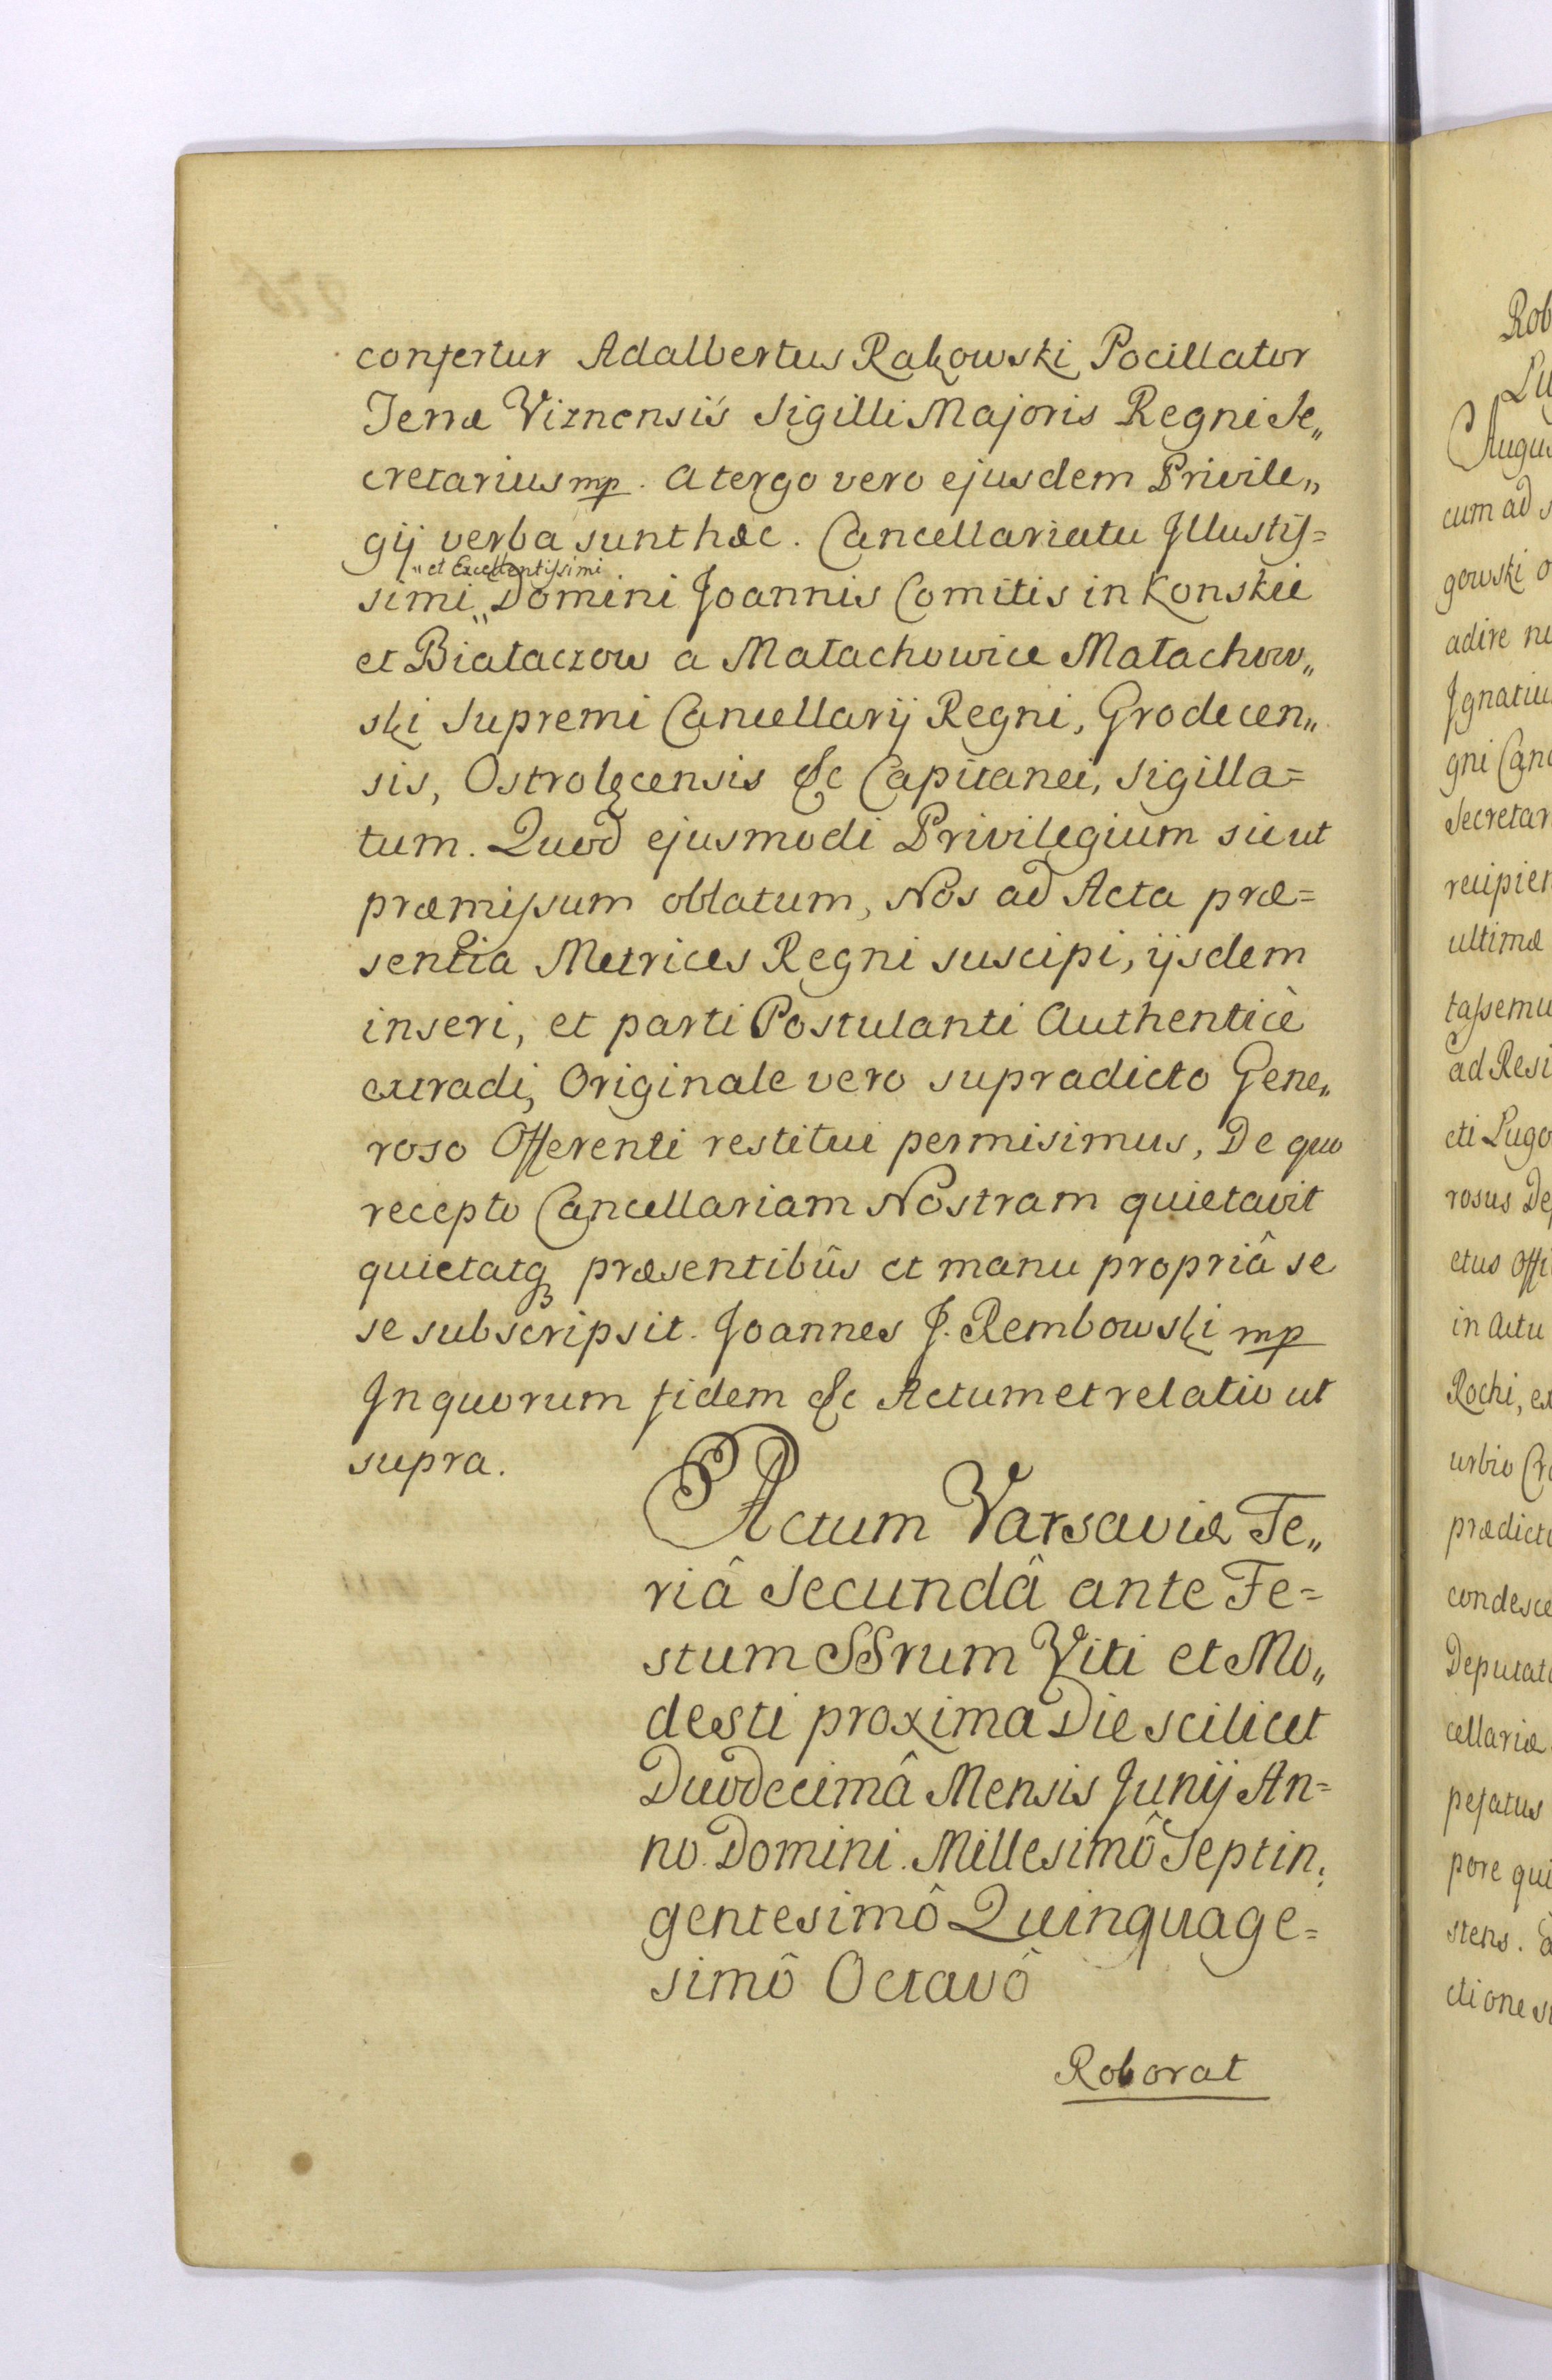 confertur Adalbertus Rakowski Pocillator
Terræ Viznensis Sigilli Majoris Regni Se„
cretarius mp. a tergo vero ejusdem Privile„
gij verba sunt hæc. Cancellariatu Jllustis=
„et Excellentissimi
simi „ Domini Joannis Comitis in Konskie
et Białaczow a Małachowice Małachow„
ski Supremi Cancellarij Regni, Grodecen„
sis, Ostrolęcensis &c Capitanei, Sigilla=
tum. Quod ejusmodi Privilegium sicut
præmissum oblatum, Nos ad Acta præ=
sentia Metrices Regni suscipi, ijsdem
inseri, et parti Postulanti Authenticè
extradi, Originale vero supradicto Gene„
roso Offerenti restitui permisimus, De quo
recepto Cancellariam Nostram quietavit
quietatq, præsentibûs et manu propriâ se
se subscripsit. Joannes J. Rembowski mp
Jn quorum fidem &c Actum et relatio ut
supra.
Actum Varsaviæ Fe„
riâ Secundâ ante Fe=
stum SSrum Viti et Mo„
desti proxima Die scilicet
Duodecimâ Mensis Junij An=
no Domini. Millesimô Septin„
gentesimô Quinquage=
simô Octavô
Roborat
Rob
Lug
Augus
cum ad s
gowski o
adire nu
Jgnatiu
gni Canc
Secretar
recipien
ultimæ
tassemu
ad Resi
cti Lugo
rosus De
etus Offi
in actu
Rochi, ex
urbio Cra
prædicto
condesce
Deputato
cellariæ
pejatus
pore qui
stens.
ctione s